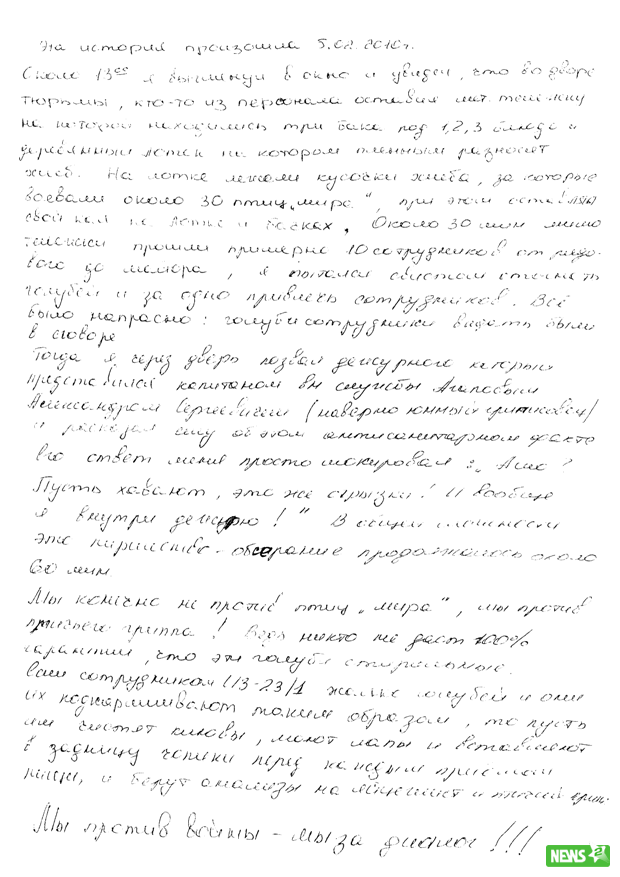 Эта история произошла 5.02.2010г.
Около 13⁰⁰ я выглянул в окно и увидел, что во дворе
тюрьмы, кто-то из персонала оставил мет. тележку
на которой находились три бака под 1,2,3 блюда и
деревянный лоток на котором пленным разносят
хлеб. На лотке лежали кусочки хлеба, за которые
воевали около 30 птиц „мира", при этом оставляя
свой кал на лотке и бачках. Около 30 мин мимо
тележки прошли примерно 10 сотрудников от рядо-
вого до майора, я пытался свистом отогнать
голубей и за одно привлечь сотрудников. Всё
было напрасно: голуби сотрудники видать были
в сговоре
Тогда я через дверь позвал дежурного который
представился капитаном вн службы Агаповым
Александром Сергеевичем (наверно юнный
и рассказал ему об этом антисанитарном факте
Его ответ меня просто шокировал: „Ама!
Пусть хавают, это же огрызки! И вообще
я внутри дежурю!" В общей сложности
это пиршество-обсерание продолжалось около
60 мин
Мы конечно не против птиц „мира", мы против
птичьего гриппа! Ведь никто не даст 100%
гарантии, что эти голуби стирильные.
Если сотрудникам ИЗ-23/1 жалко голубей и они
их подкармливают таким образом, то пусть
им чистят клювы, моют лапы и вставляют
в задницу чопики перед каждым приёмом
пищи, и берут анализы на и птичий грип.
Мы против войны - мы за диалог!!!
NEWS 27